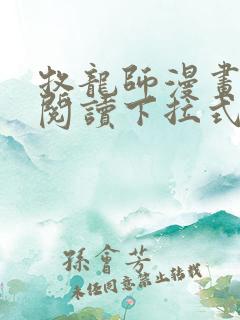 牧龍師漫畫
閱讀下拉式
孫會芳
未經同意禁止轉載